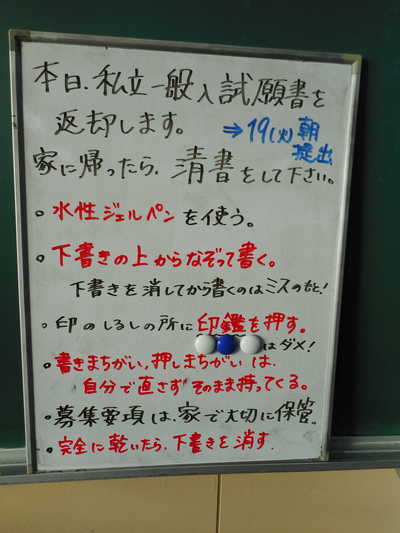 本日、私立一般入試願書を
返却します。
⇒19(火)朝
提出
家に帰ったら、清書をして下さい。
。水性ジェルペンを使う。
。下書きの上からなぞって書く。
下書きを消してから書くのはミスのもと!
。印のしるしの所に印鑑を押す。
はダメ!
。書きまちがい,押しまちがいは、
自分で直さずそのまま持ってくる。
。募集要項は、家で大切に保管。
。完全に乾いたら、下書きを消す.